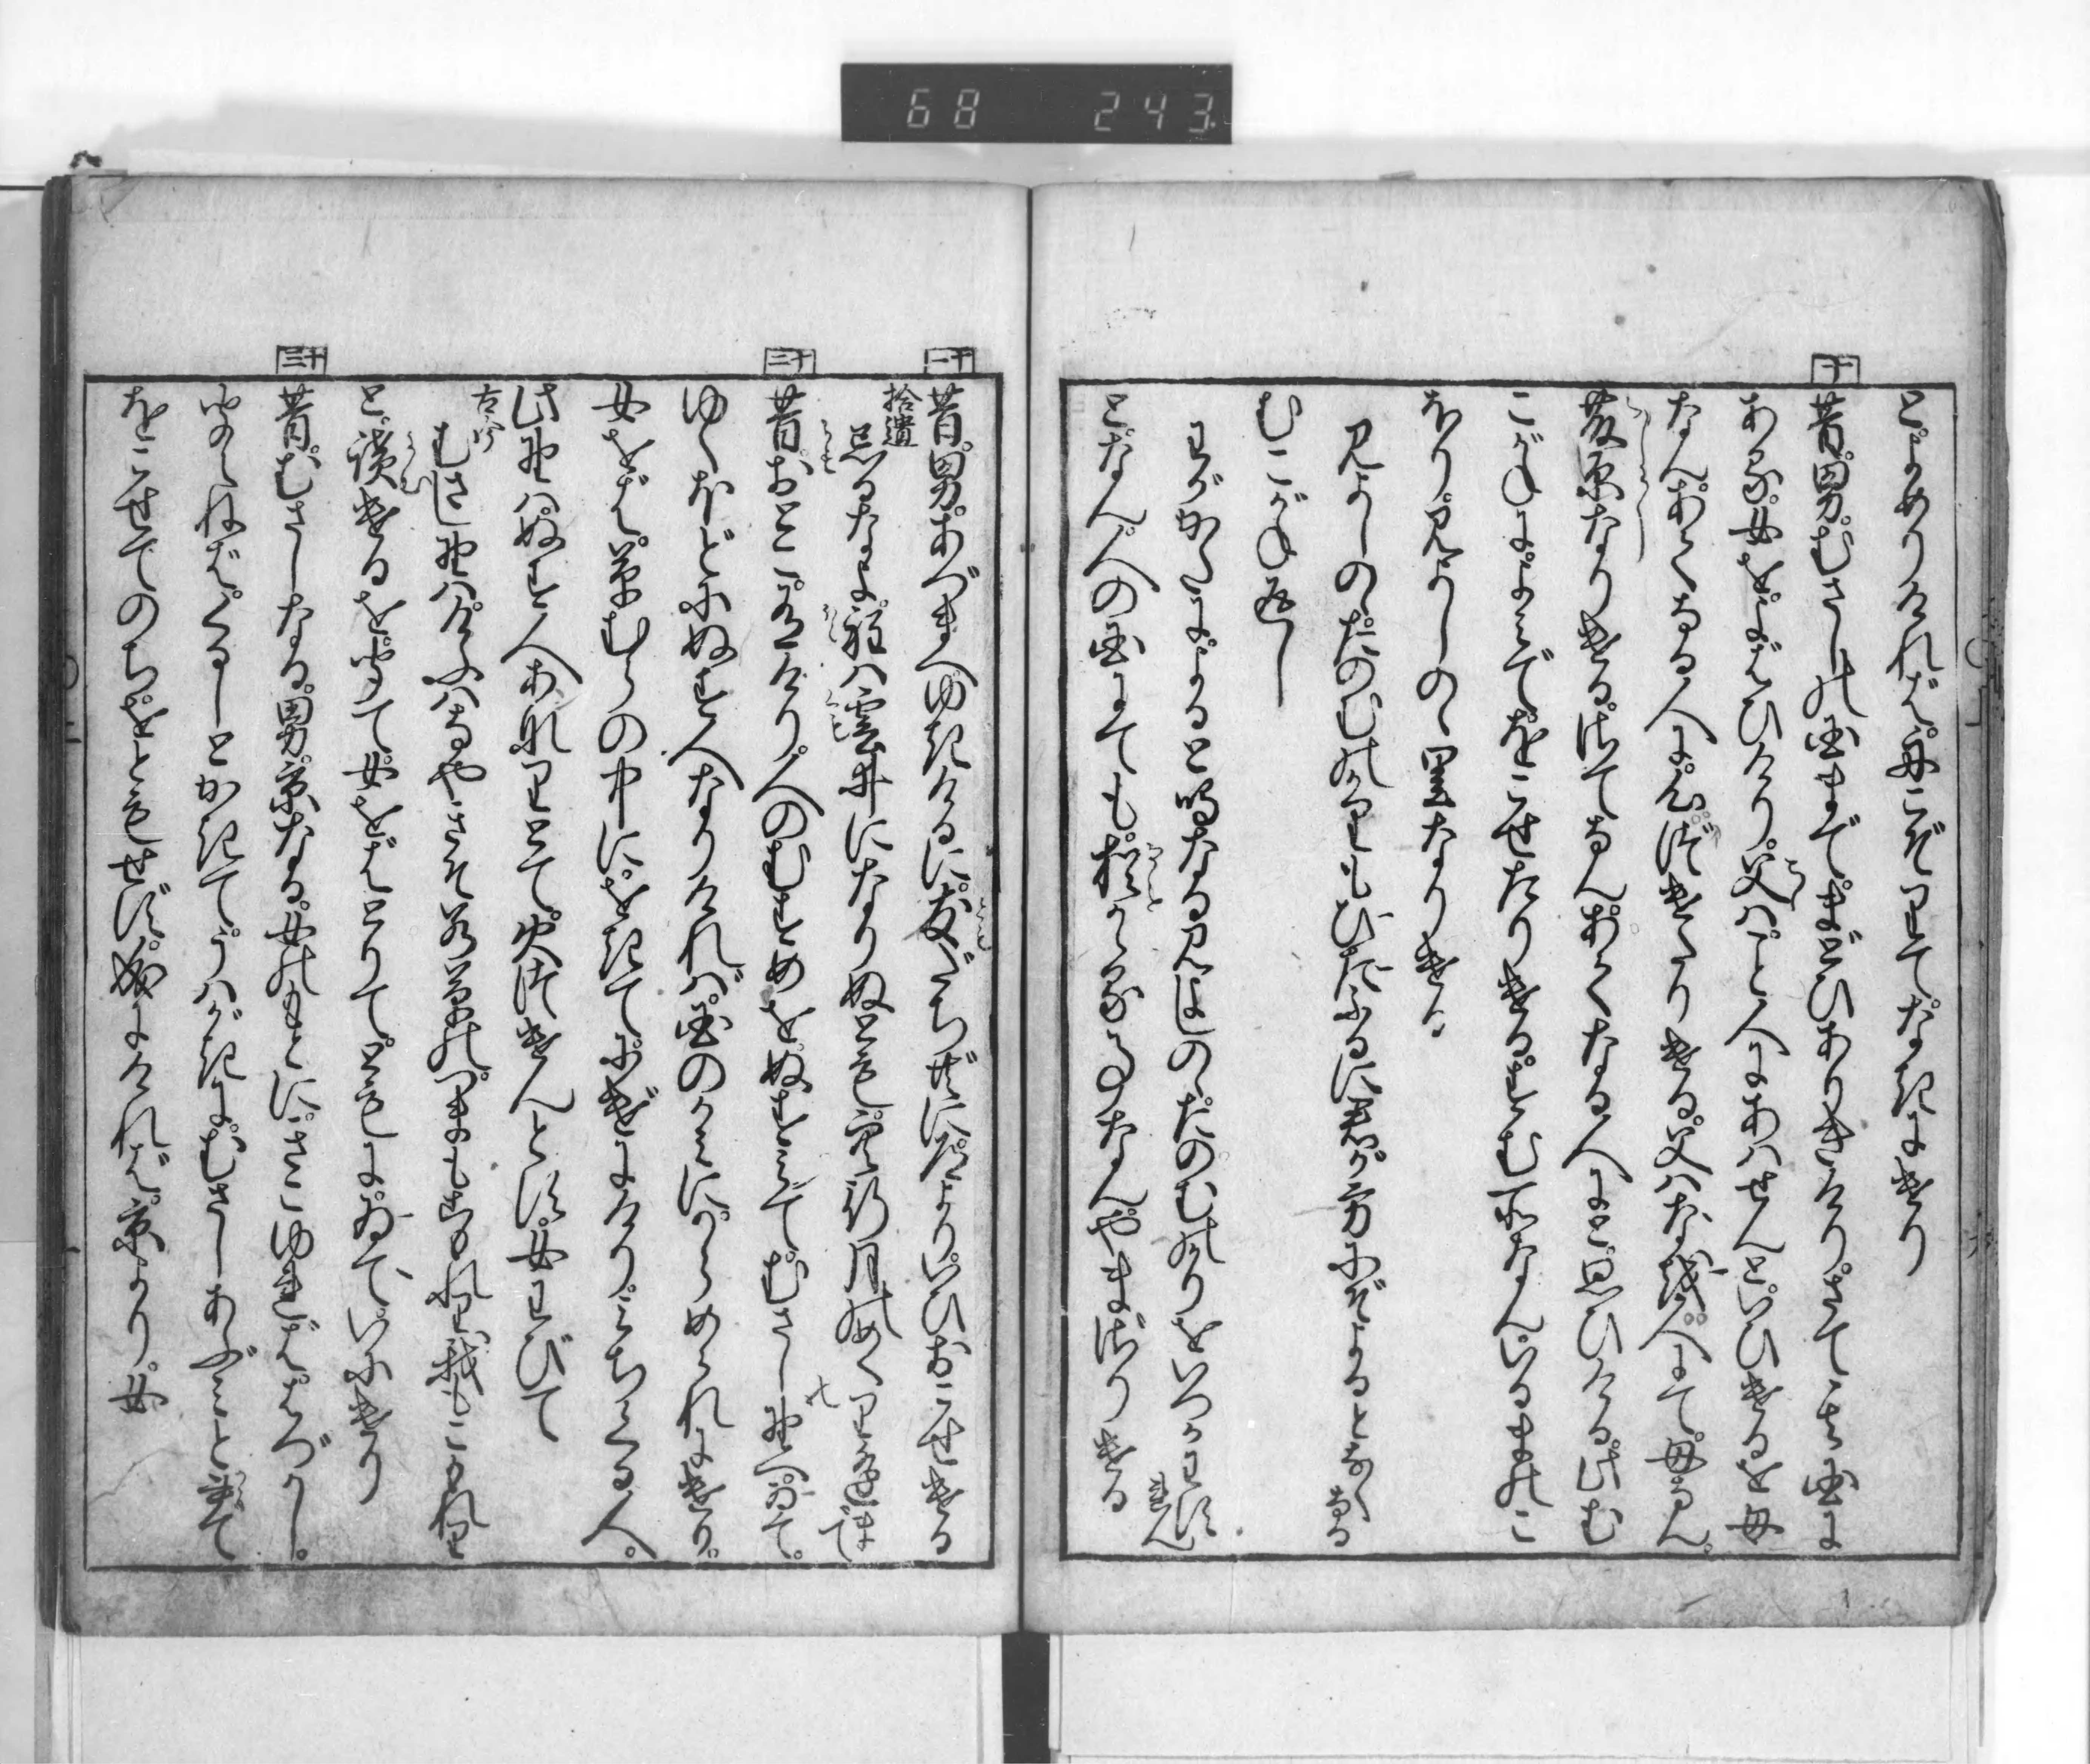 68 243
とよめりければ。舟こぞりて。なきにけり
十
昔。男。むさしの国まで。まどひありきけり。さて。其国に
ある。女を。よばひけり。父は。こと人にあはせんと。いひけるを。母
なん。あてなる人に。心づけたりける。父はなほ人にて。母なん。
藤原なりける。さてなん。あてなる人にと。思ひける。此む
こがねに。よみて。をこせたりける。すむ所なん。いるまのこ
ほり。見よしのゝ里なりける
見よしの。たのむの鴈もひたふるに君が方にぞよるとなく
なる
むこがね返し
わが方によるとなくなる見よしのゝたのむの鴈をいつかわす
れん
と。なん。人の国にても。猶かゝる事なんやまざりける
十一
昔。男。あづまへゆきけるに。友だちどもに。道より。いひおこせける
拾遺
忘るなよ程は雲井になりぬとも空行月のめぐりあふま
で
十二
昔。おとこ。有けり。人のむすめをぬすみて。むさし野へゐて。
ゆくほどにぬす人なりければ国のかみに。からめられにけり。
女をば草むらの中に。をきてにげにけり。みちくる人。
此野はぬす人あなりとて。火つけんとす。女わびて
古今
むさし野はけふはなやきそ若草のつまもこもれり我もこもれり
と。読けるを。聞て女をばとりて。ともにゐていにけり
十三
昔。むさしなる。男。京なる。女のもとに。きこゆれば。はづかし。
聞えねば。くるしとかきて。うはがきに。むさしあぶみと書て
をこせてのち。をともせず。成にければ。京より。女